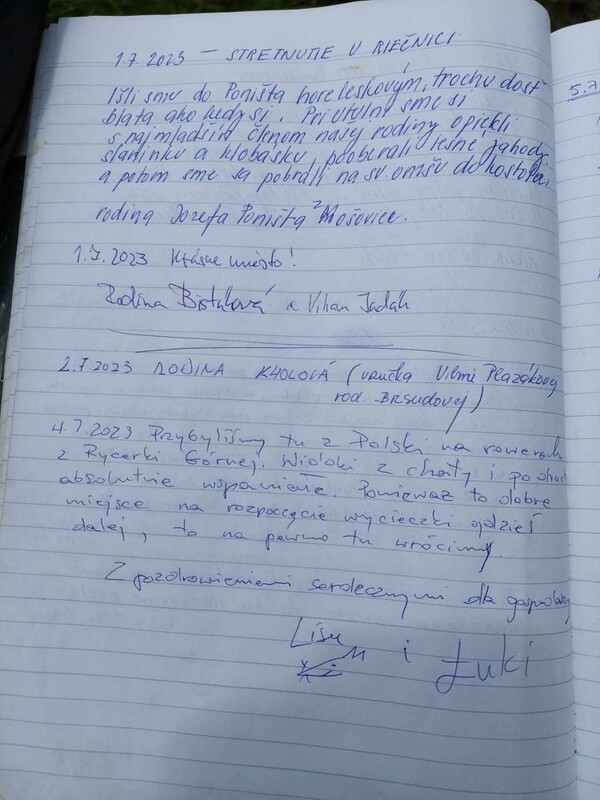 1.7.2023 — STRETNUTIE V RIEČNICI
Išli sme do Poništa hore leskovým, trochu dosť
blata, ako kedysi. Pri útulni sme si
s najmladším členom našej rodiny opiekli
slaninku a klobásku, pooberali lesné jahody
a potom sme sa pobrali na sv. omšu do kostola.
rodina Jozefa Poništa z Mošoviec.
1.7.2023 Krásne miesto!
Rodina a
2.7.2023 RODINA KHOLOVÁ (vnučka Vilmi
rod.
4.7.2023 Przybyliśmy tu z Polski na rowerach
z Rycerki Górnej. Widoki z chaty i po drodze
absolutnie wspaniałe. Ponieważ to dobre
miejsce na rozpoczęcie wycieczki gdzieś
dalej, to na pewno tu wrócimy.
Z pozdrowieniami serdecznymi dla gospodarzy
i Łuki
5.7